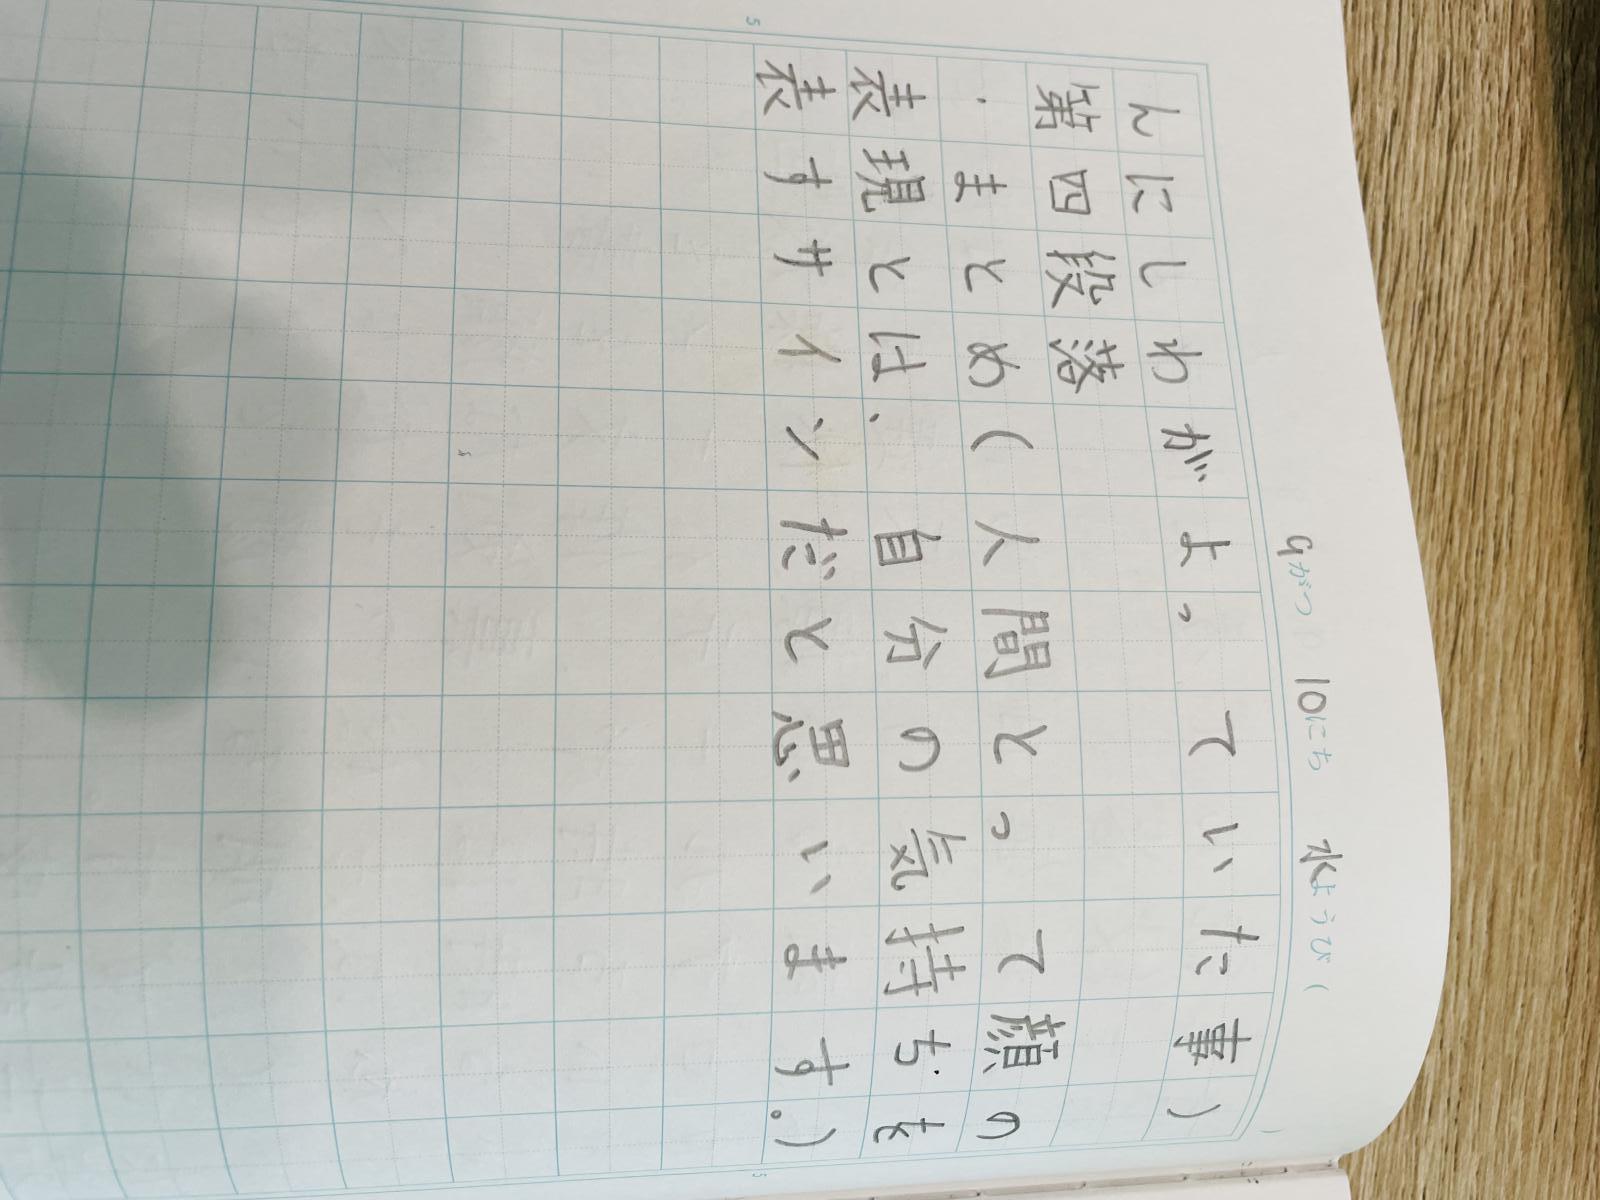 9がつ 10にち 水ようび (
んにしわがよっていた事)
第四段落
・まとめ(人間とって顔の
表現とは、自分の気持ちを
表すサインだと思います。)
5
5